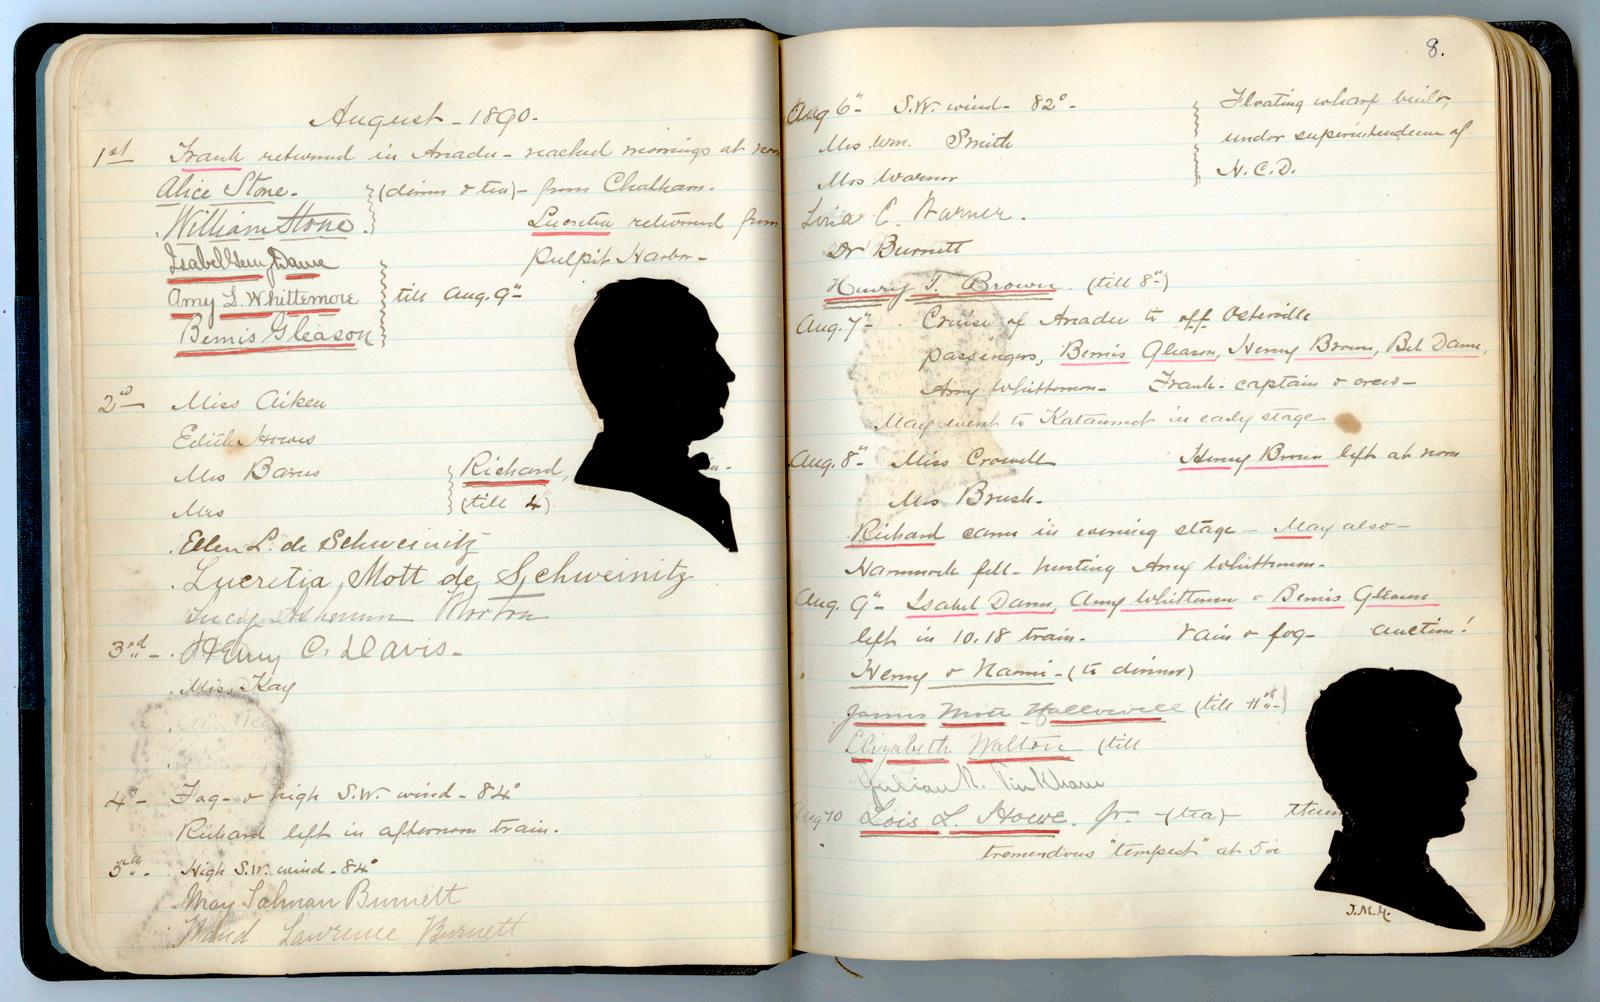 August - 1890.
1st Frank returned in Areadu - reached moorings at noon
Alice Stone. (dinner & tea) - from Chatham.
William Stone. Lucretia returned from
Isabel Dame Pulpit Harbor -
Amy L. Whittemore till Aug. 9th
Bemis Gleason
2d Miss Aiken
Edith Howes
Mrs Barns Richard,
Mrs (till 4)
Ellen L. de Schweinitz
Lucretia Mott de Schweinitz
Lucy
3rd - Henry C. Davis -
Miss Kay
4th - Fog - & high S.W. wind - 84°
Richard left in afternoon train.
5th - High S.W. wind - 84°
May Salman Burnett
Maud Lawrence Burnett
8.
Aug 6th S.W. wind - 82° - Floating wharf built,
Mrs Wm. Smith under superintendence of
Mrs Warner N. C. D.
C. Warner.
Dr Burnett
Henry T. Brown. (till 8th)
Aug. 7th - Cruise of Areadu to off Osterville
passengers, Bemis Gleason, Henry Brown, Bel Dame,
Amy Whittemore - Frank - captain & crew -
May went to Kataumet in early stage
Aug. 8th - Miss Crowell Henry Brown left at noon
Mrs Brush -
Richard came in evening stage - May also -
Hammock fell - hurting Amy Whittemore -
Aug. 9th - Isabel Dame, Amy Whittemore & Bemis Gleason
left in 10.18 train - rain & fog - auction!
Henry & Nannie - (to dinner)
James Mott Hallowell (till 11th)
Elizabeth Walton (till
R. Pinkham
Aug 10 Lois L. Howe. Jr. - (tea) -
tremendous "tempest" at 5
J.M.H.